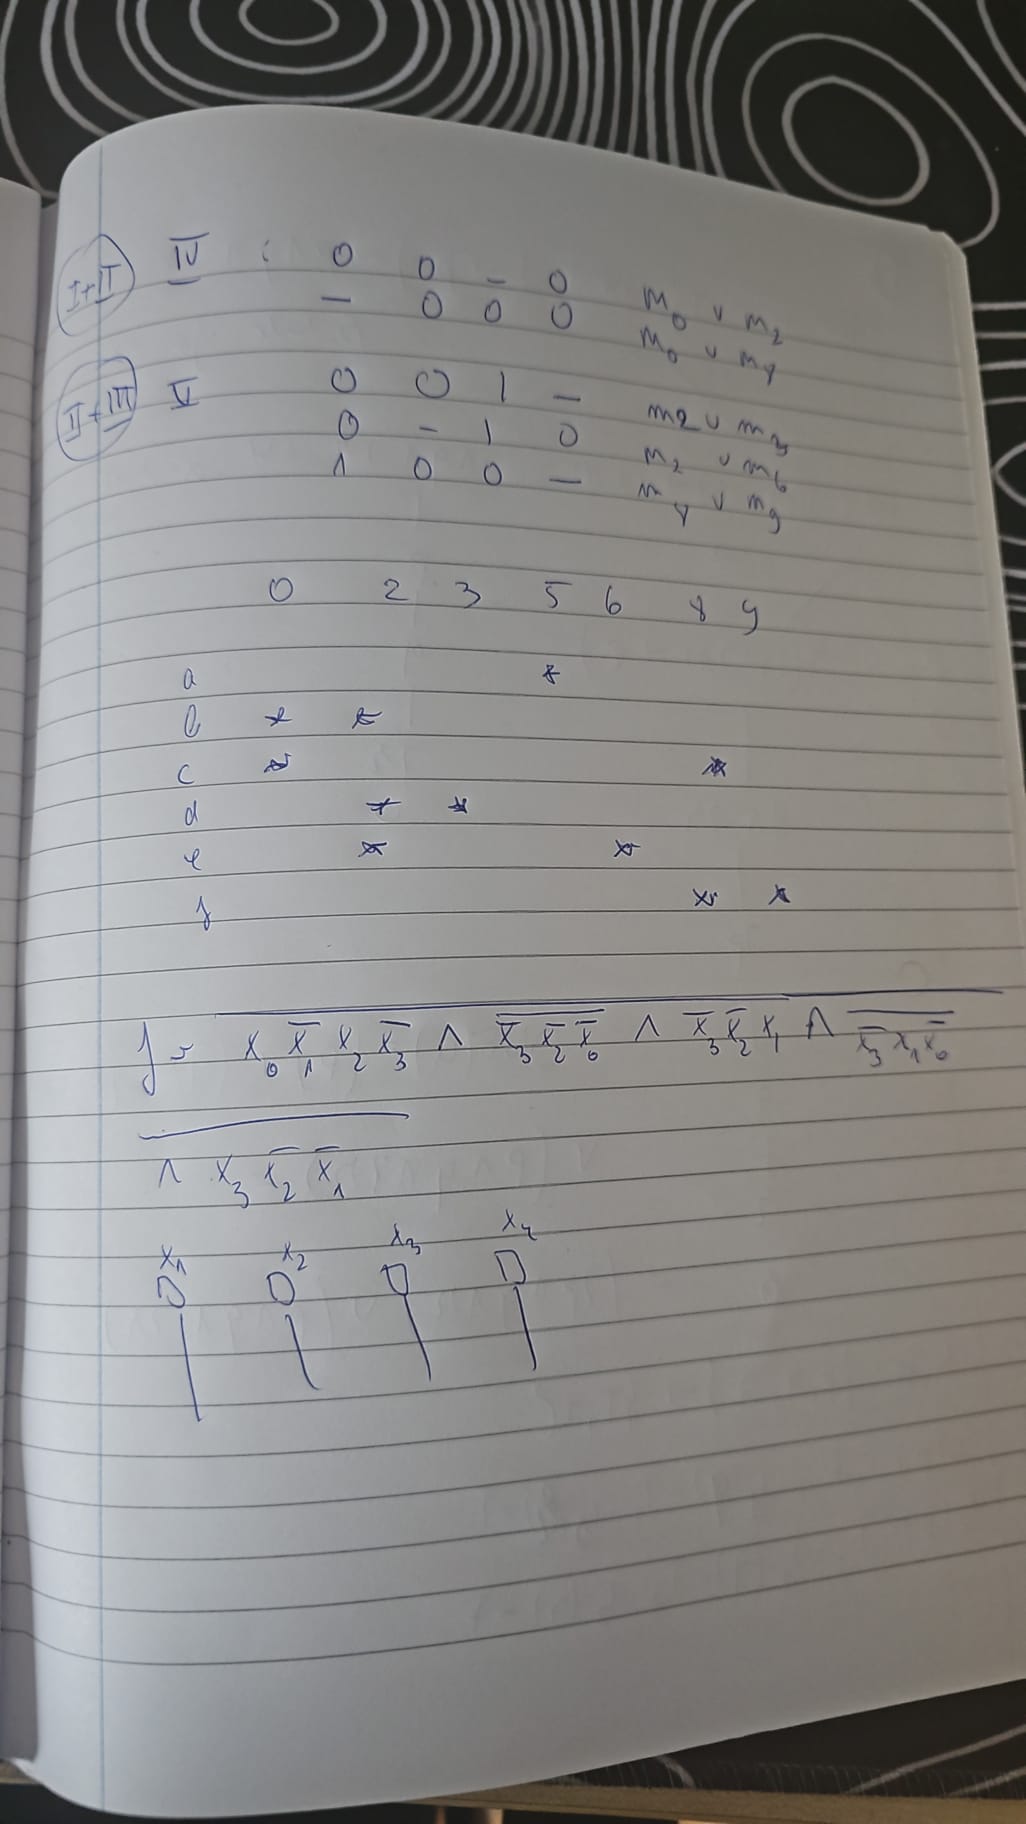 I+II IV : 0 0 – 0 m₀ ∨ m₂
– 0 0 0 m₀ ∨ m₈
II+III V 0 0 1 – m2 ∨ m₃
0 – 1 0 m₂ ∨ m₆
1 0 0 – m₈ ∨ m₉
0 2 3 5 6 8 9
a *
b * *
c * *
d * *
e * *
f * *
f = x₀ x̅₁ x₂ x̅₃ ∧ x̅₃ x̅₂ x̅₀ ∧ x̅₃ x̅₂ x₁ ∧ x̅₃ x₁ x̅₀
∧ x₃ x̅₂ x̅₁
x₁ x₂ x₃